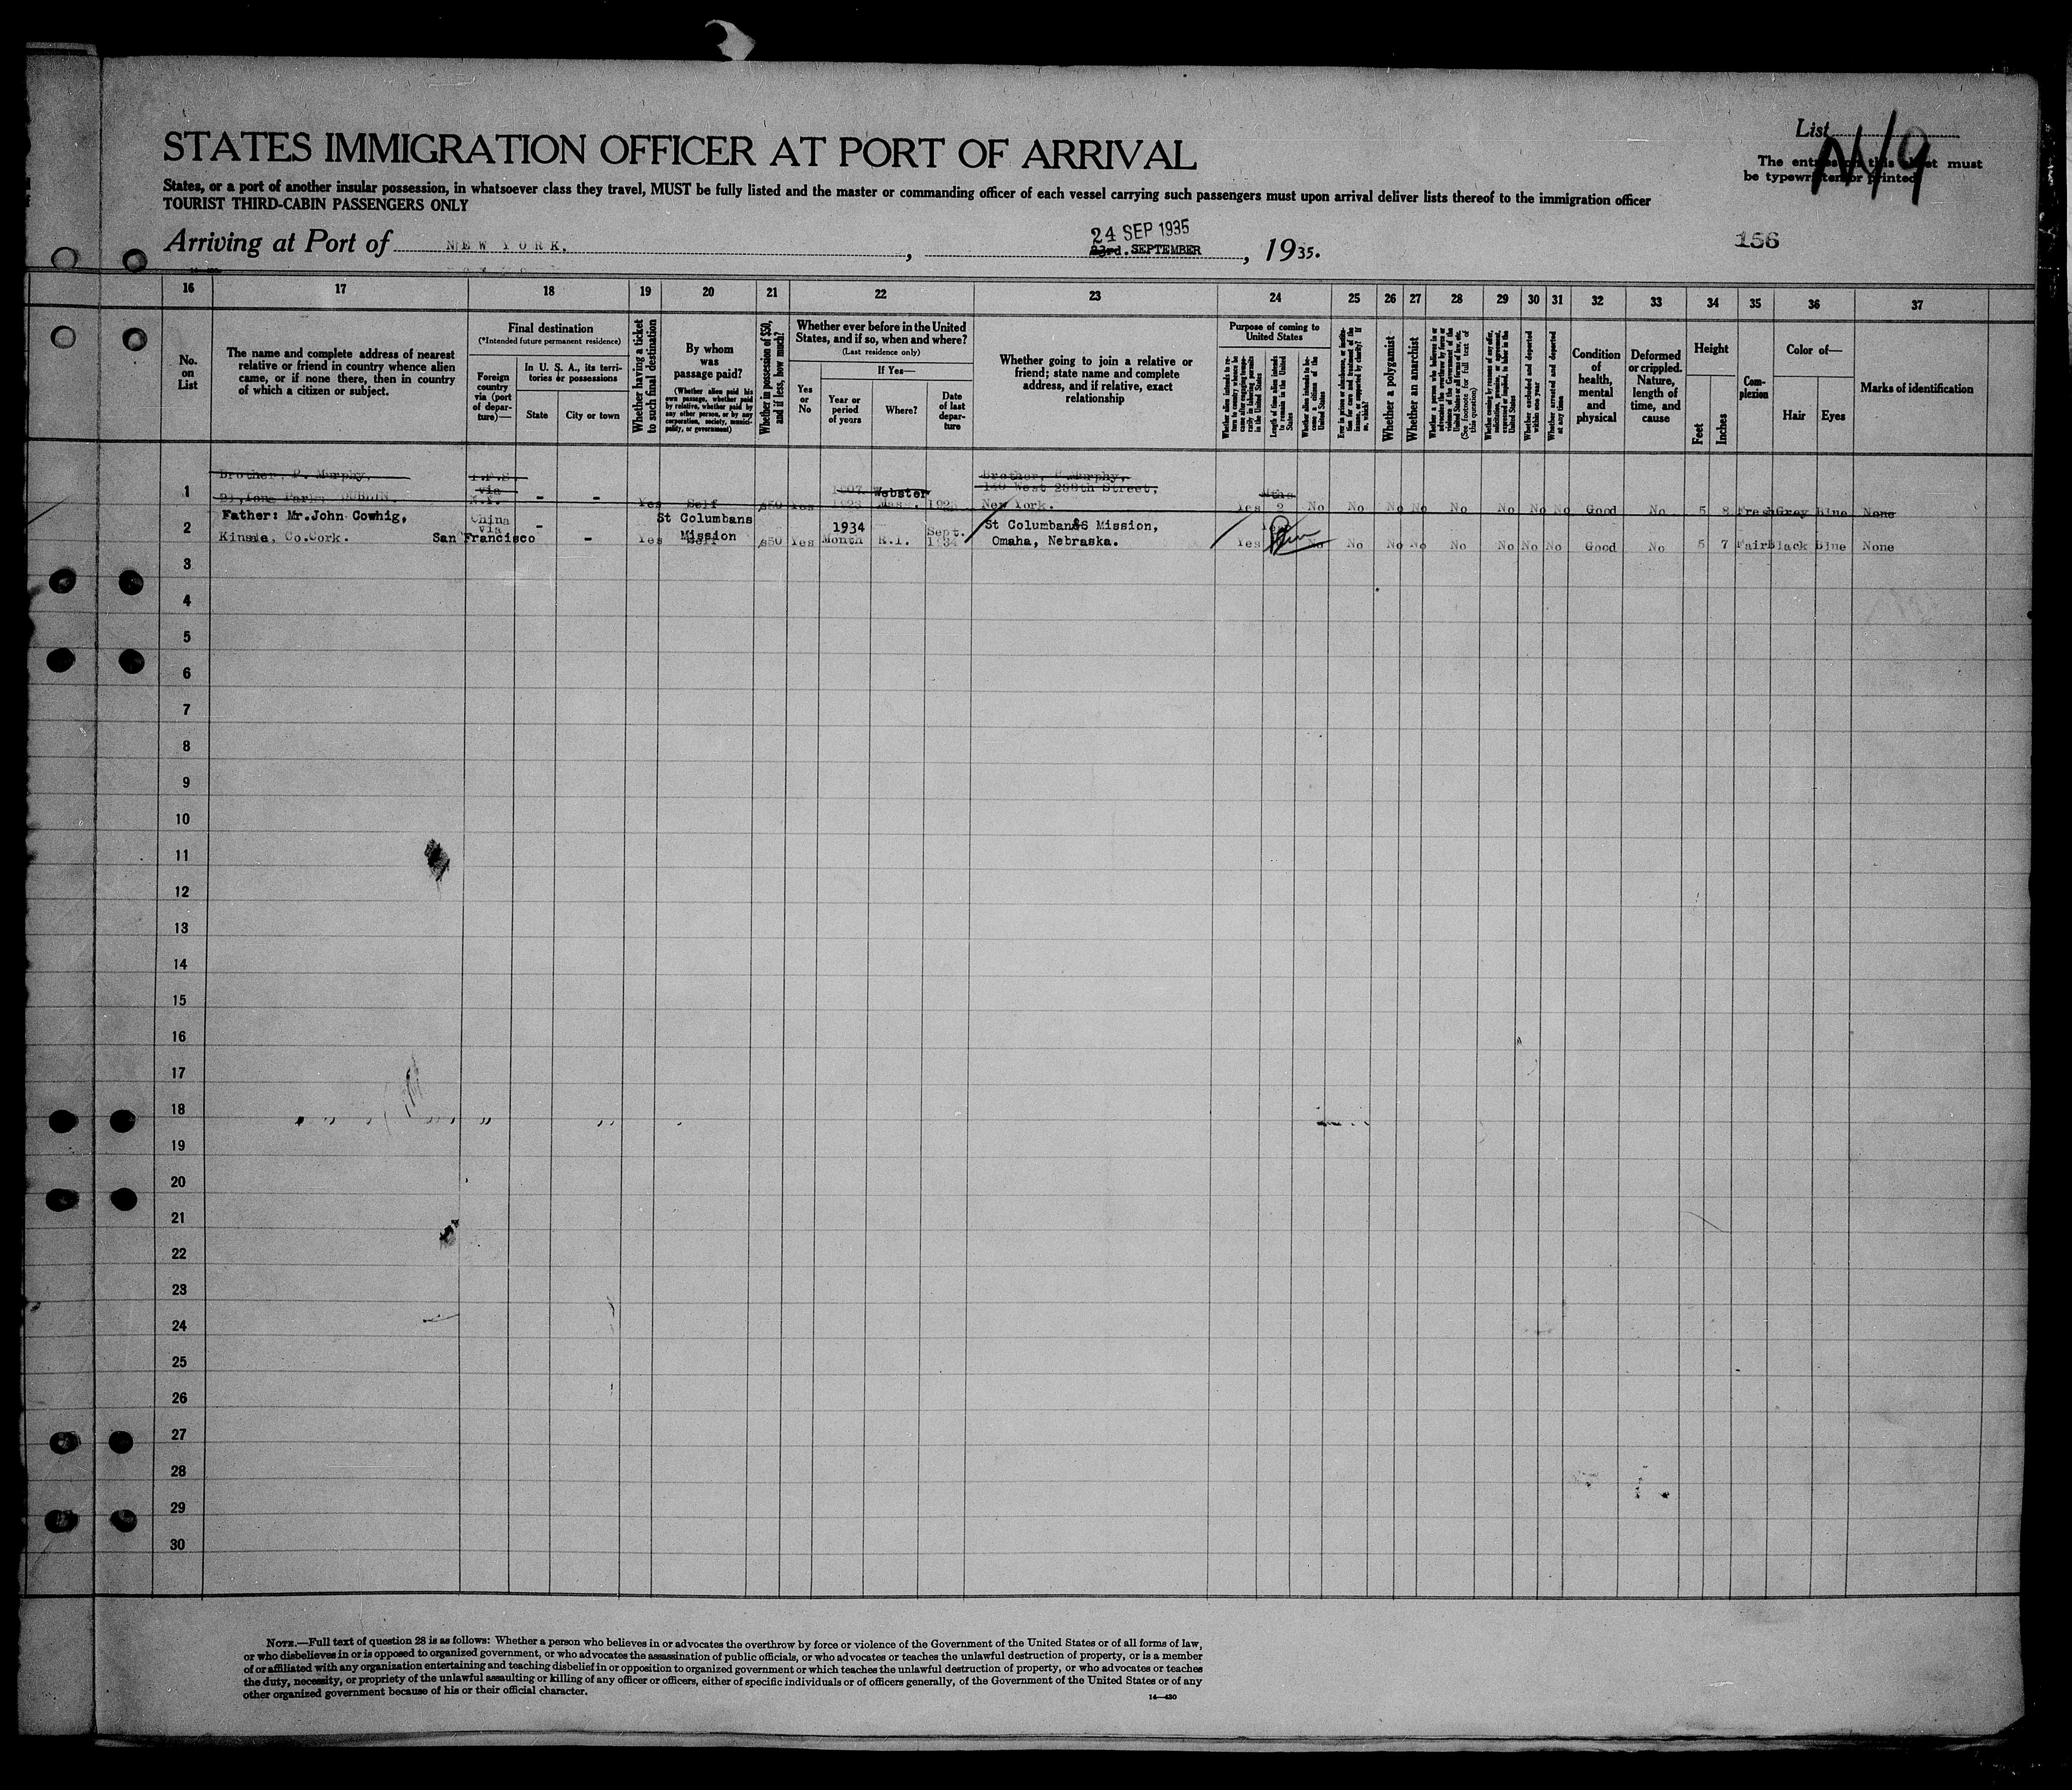 STATES IMMIGRATION OFFICER AT PORT OF ARRIVAL
List
The entries on this sheet must
be typewritten or printed
States, or a port of another insular possession, in whatsoever class they travel, MUST be fully listed and the master or commanding officer of each vessel carrying such passengers must upon arrival deliver lists thereof to the immigration officer
TOURIST THIRD-CABIN PASSENGERS ONLY
Arriving at Port of NEW YORK, 24 SEP 1935
23rd. SEPTEMBER, 1935.
156
16 17 18 19 20 21 22 23 24 25 26 27 28 29 30 31 32 33 34 35 36 37
No.
on
List
The name and complete address of nearest
relative or friend in country whence alien
came, or if none there, then in country
of which a citizen or subject.
Final destination
(*Intended future permanent residence)
Foreign
country
via (port
of depar-
ture)—
In U. S. A., its terri-
tories or possessions
State
City or town
Whether having a ticket
to such final destination
By whom
was
passage paid?
(Whether alien paid his
own passage, whether paid
by relative, whether paid by
any other person, or by any
corporation, society, munici-
pality, or government)
Whether in possession of $50,
and if less, how much?
Whether ever before in the United
States, and if so, when and where?
(Last residence only)
Yes
or
No
If Yes—
Year or
period
of years
Where?
Date
of last
depar-
ture
Whether going to join a relative or
friend; state name and complete
address, and if relative, exact
relationship
Purpose of coming to
United States
Length of time alien intends
to remain in the United
States
Whether alien intends to be-
come a citizen of the
United States
Whether a polygamist
Whether an anarchist
Whether arrested and deported
at any time
Condition
of
health,
mental
and
physical
Deformed
or crippled.
Nature,
length of
time, and
cause
Height
Feet
Inches
Com-
plexion
Color of—
Hair
Eyes
Marks of identification
1
Brother, P. Murphy,
DUBLIN.
via
N.Y.
- -
Yes Self $50 Yes
1923
Webster
Mass.
Brother, P. Murphy,
140 West 238th Street,
New York.
Yes 2 No No No No No No No No Good No 5 8 Fresh Grey Blue None
2
Father: Mr.John Cowhig,
Kinsale, Co.Cork.
China
via
San Francisco
- -
Yes
St Columbans
Mission
Self
$50 Yes
1934
Month
R.I.
Sept.
1934
St Columban&S Mission,
Omaha, Nebraska.
Yes No No No No No No No No Good No 5 7 Fair Black Blue None
3
4
5
6
7
8
9
10
11
12
13
14
15
16
17
18
19
20
21
22
23
24
25
26
27
28
29
30
NOTE.—Full text of question 28 is as follows: Whether a person who believes in or advocates the overthrow by force or violence of the Government of the United States or of all forms of law,
or who disbelieves in or is opposed to organized government, or who advocates the assassination of public officials, or who advocates or teaches the unlawful destruction of property, or is a member
of or affiliated with any organization entertaining and teaching disbelief in or opposition to organized government or which teaches the unlawful destruction of property, or who advocates or teaches
the duty, necessity, or propriety of the unlawful assaulting or killing of any officer or officers, either of specific individuals or of officers generally, of the Government of the United States or of any
other organized government because of his or their official character.
14—430